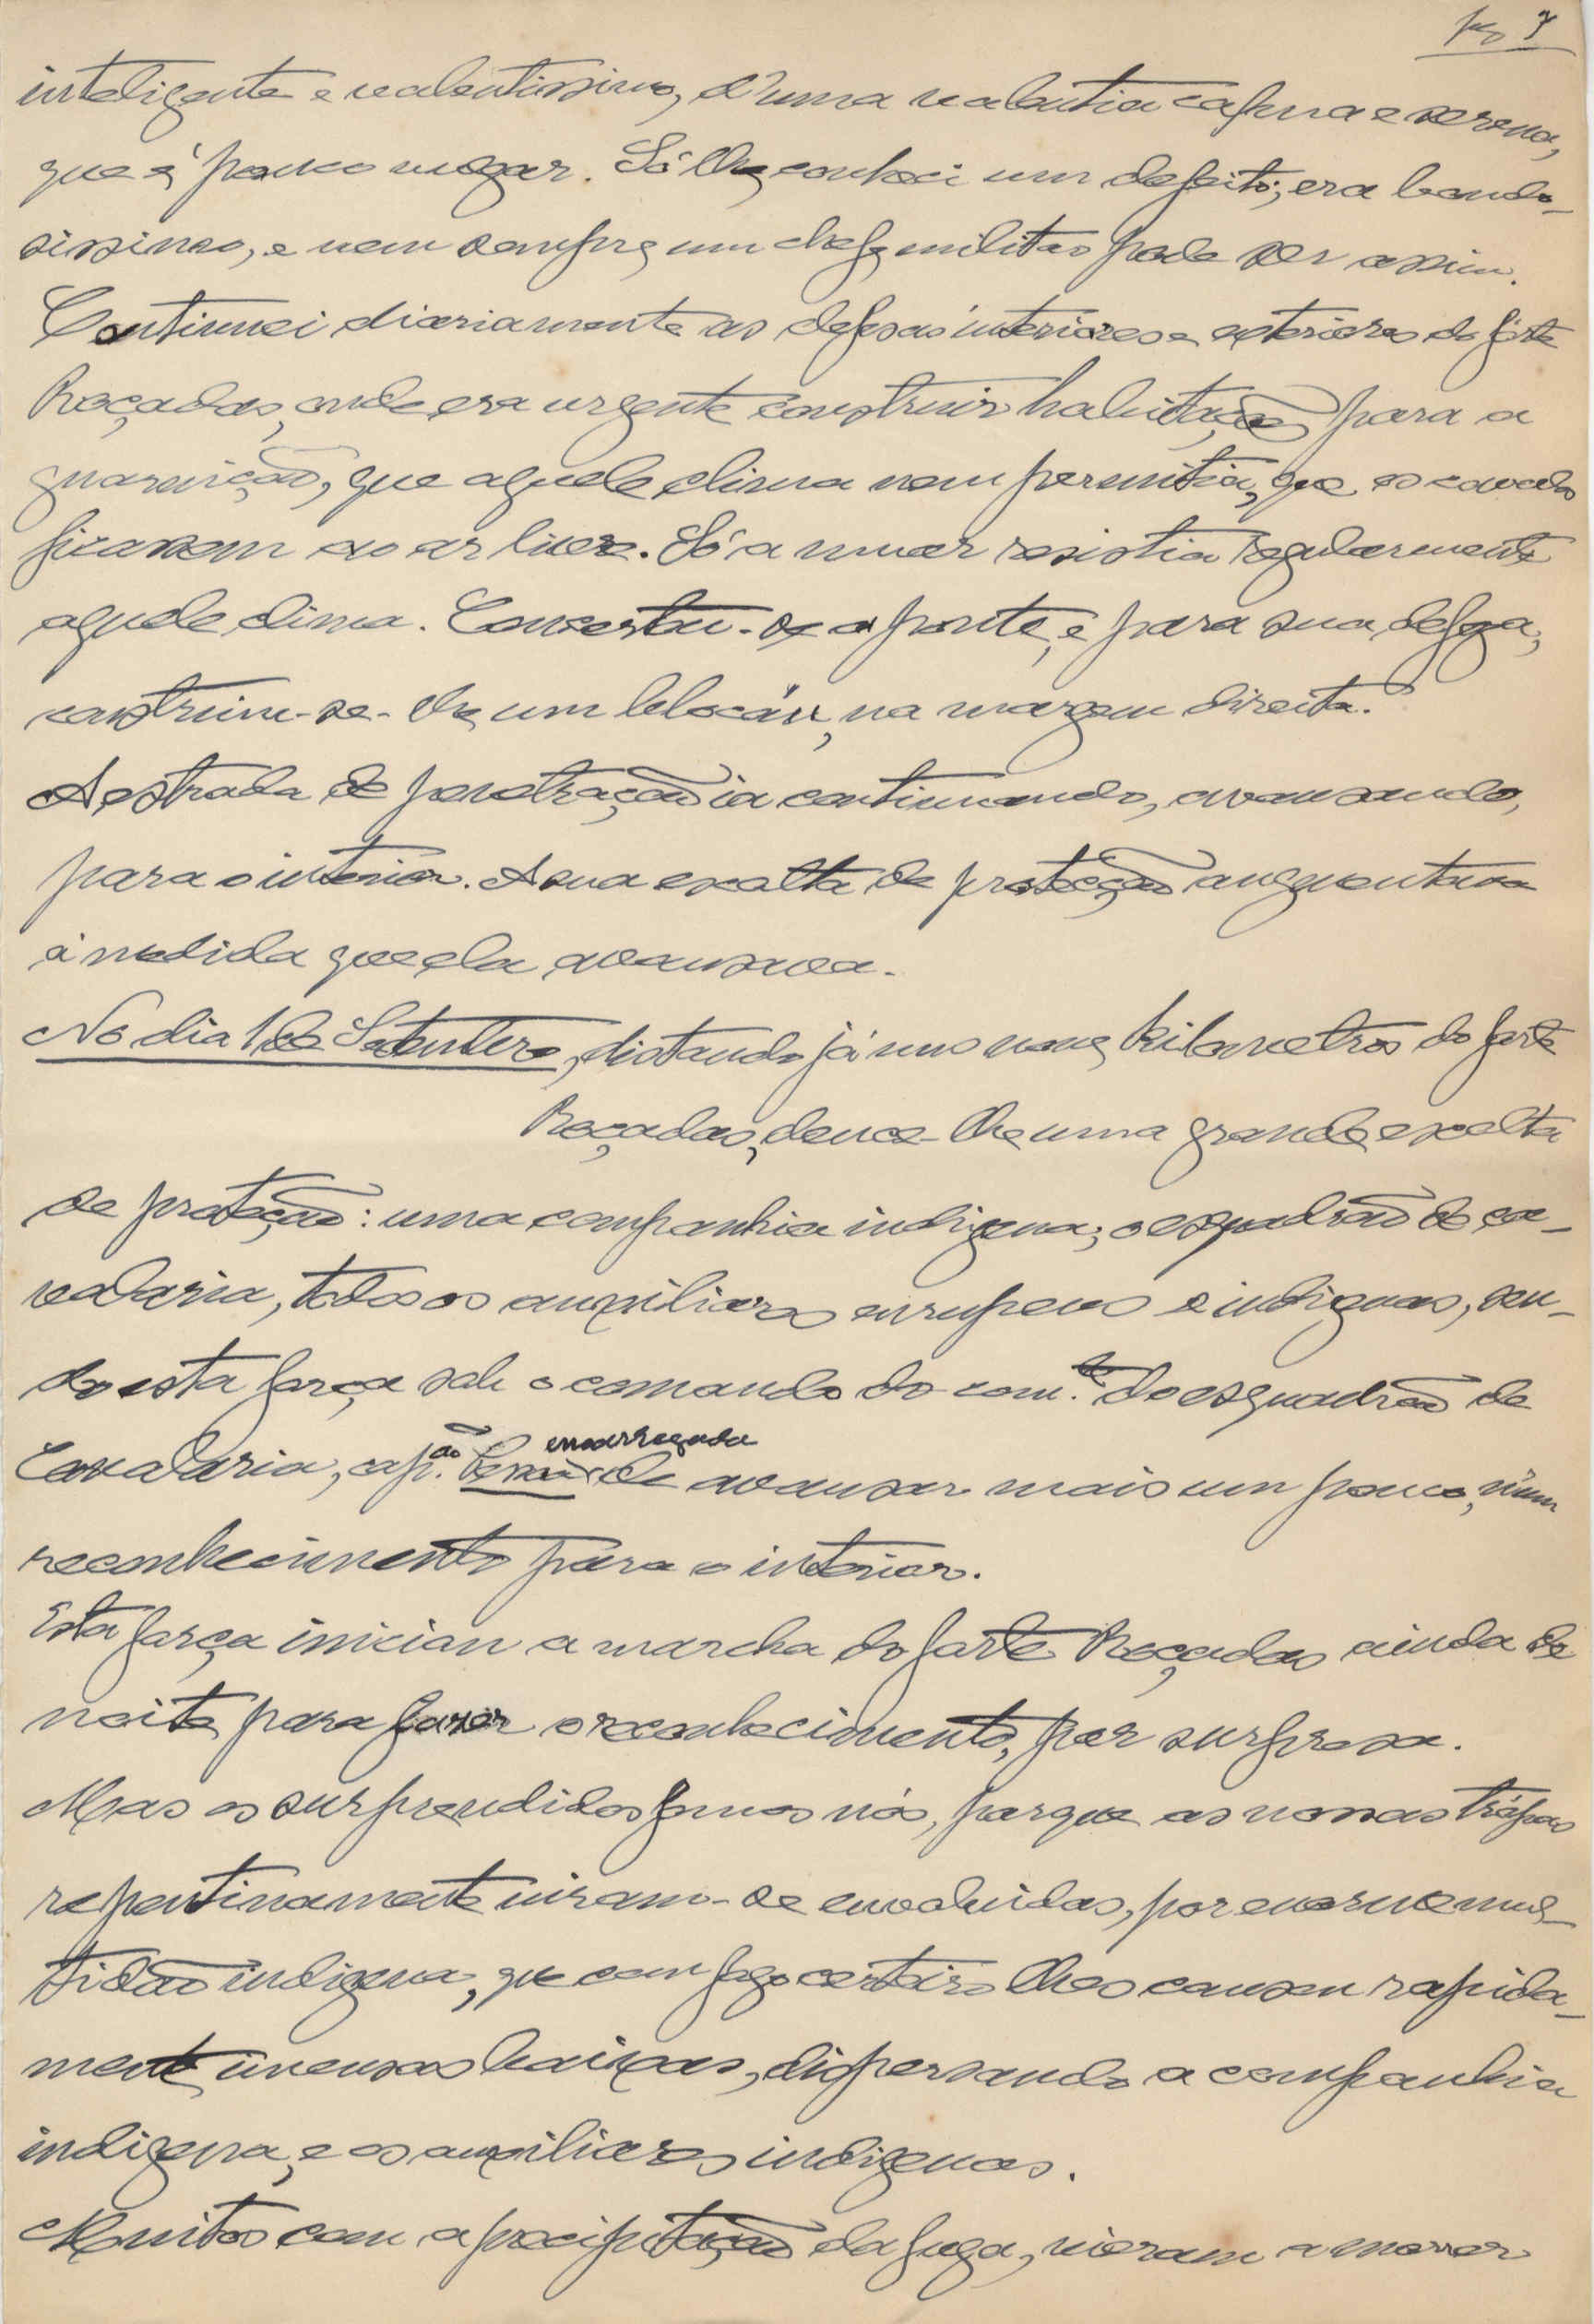 pg 7
inteligente e valentissimo, d'uma valentia calma e serena,
que é pouco vugar. Só lhe conheci um defeito; era bondo-
sissimo, e nem sempre um chefe militar pode ser assim.
Continuei diariamente as defesas interiores e exteriores do forte
Roçadas, onde era urgente construir habitação para a
guarnição, que aquele clima nem permitia, que os cavalos
ficassem ao ar livre. Só a muar resistia regularmente
aquele clima. Concertou-se a ponte, e para sua defeza,
construiu-se-lhe um blocáu, na margem direita.
A estrada de penetração ia continuando, avansando,
para o interior. A sua escolta de protecção augmentava
á medida que ela avansava.
No dia 1 de Setembro, distando já uns nove kilometros do forte
Roçadas, deuce-lhe uma grande escolta
de proteção: uma companhia indigena; o esquadrão de ca-
valaria, todos os auxiliares europeus e indigenas, sen-
do esta força sob o comando do com.te do esquadrão de
Cavalaria, cap.ão encarregada
de avansar mais um pouco, n'um
reconhecimento para o interior.
Esta força iniciou a marcha do forte Roçadas ainda de
noite para fazer o reconhecimento, por surpresa.
Mas os surprendidos fomos nós, porque as nossas trópas
repentinamente viram-se envolvidas, por enorme mul-
tidão indigena, que com fogo certeiro lhes causou rapida-
mente imensas baixas, dispersando a companhia
indigena, e os auxiliares indigenas.
Muitos com a precipitação da fuga, vieram a morrer